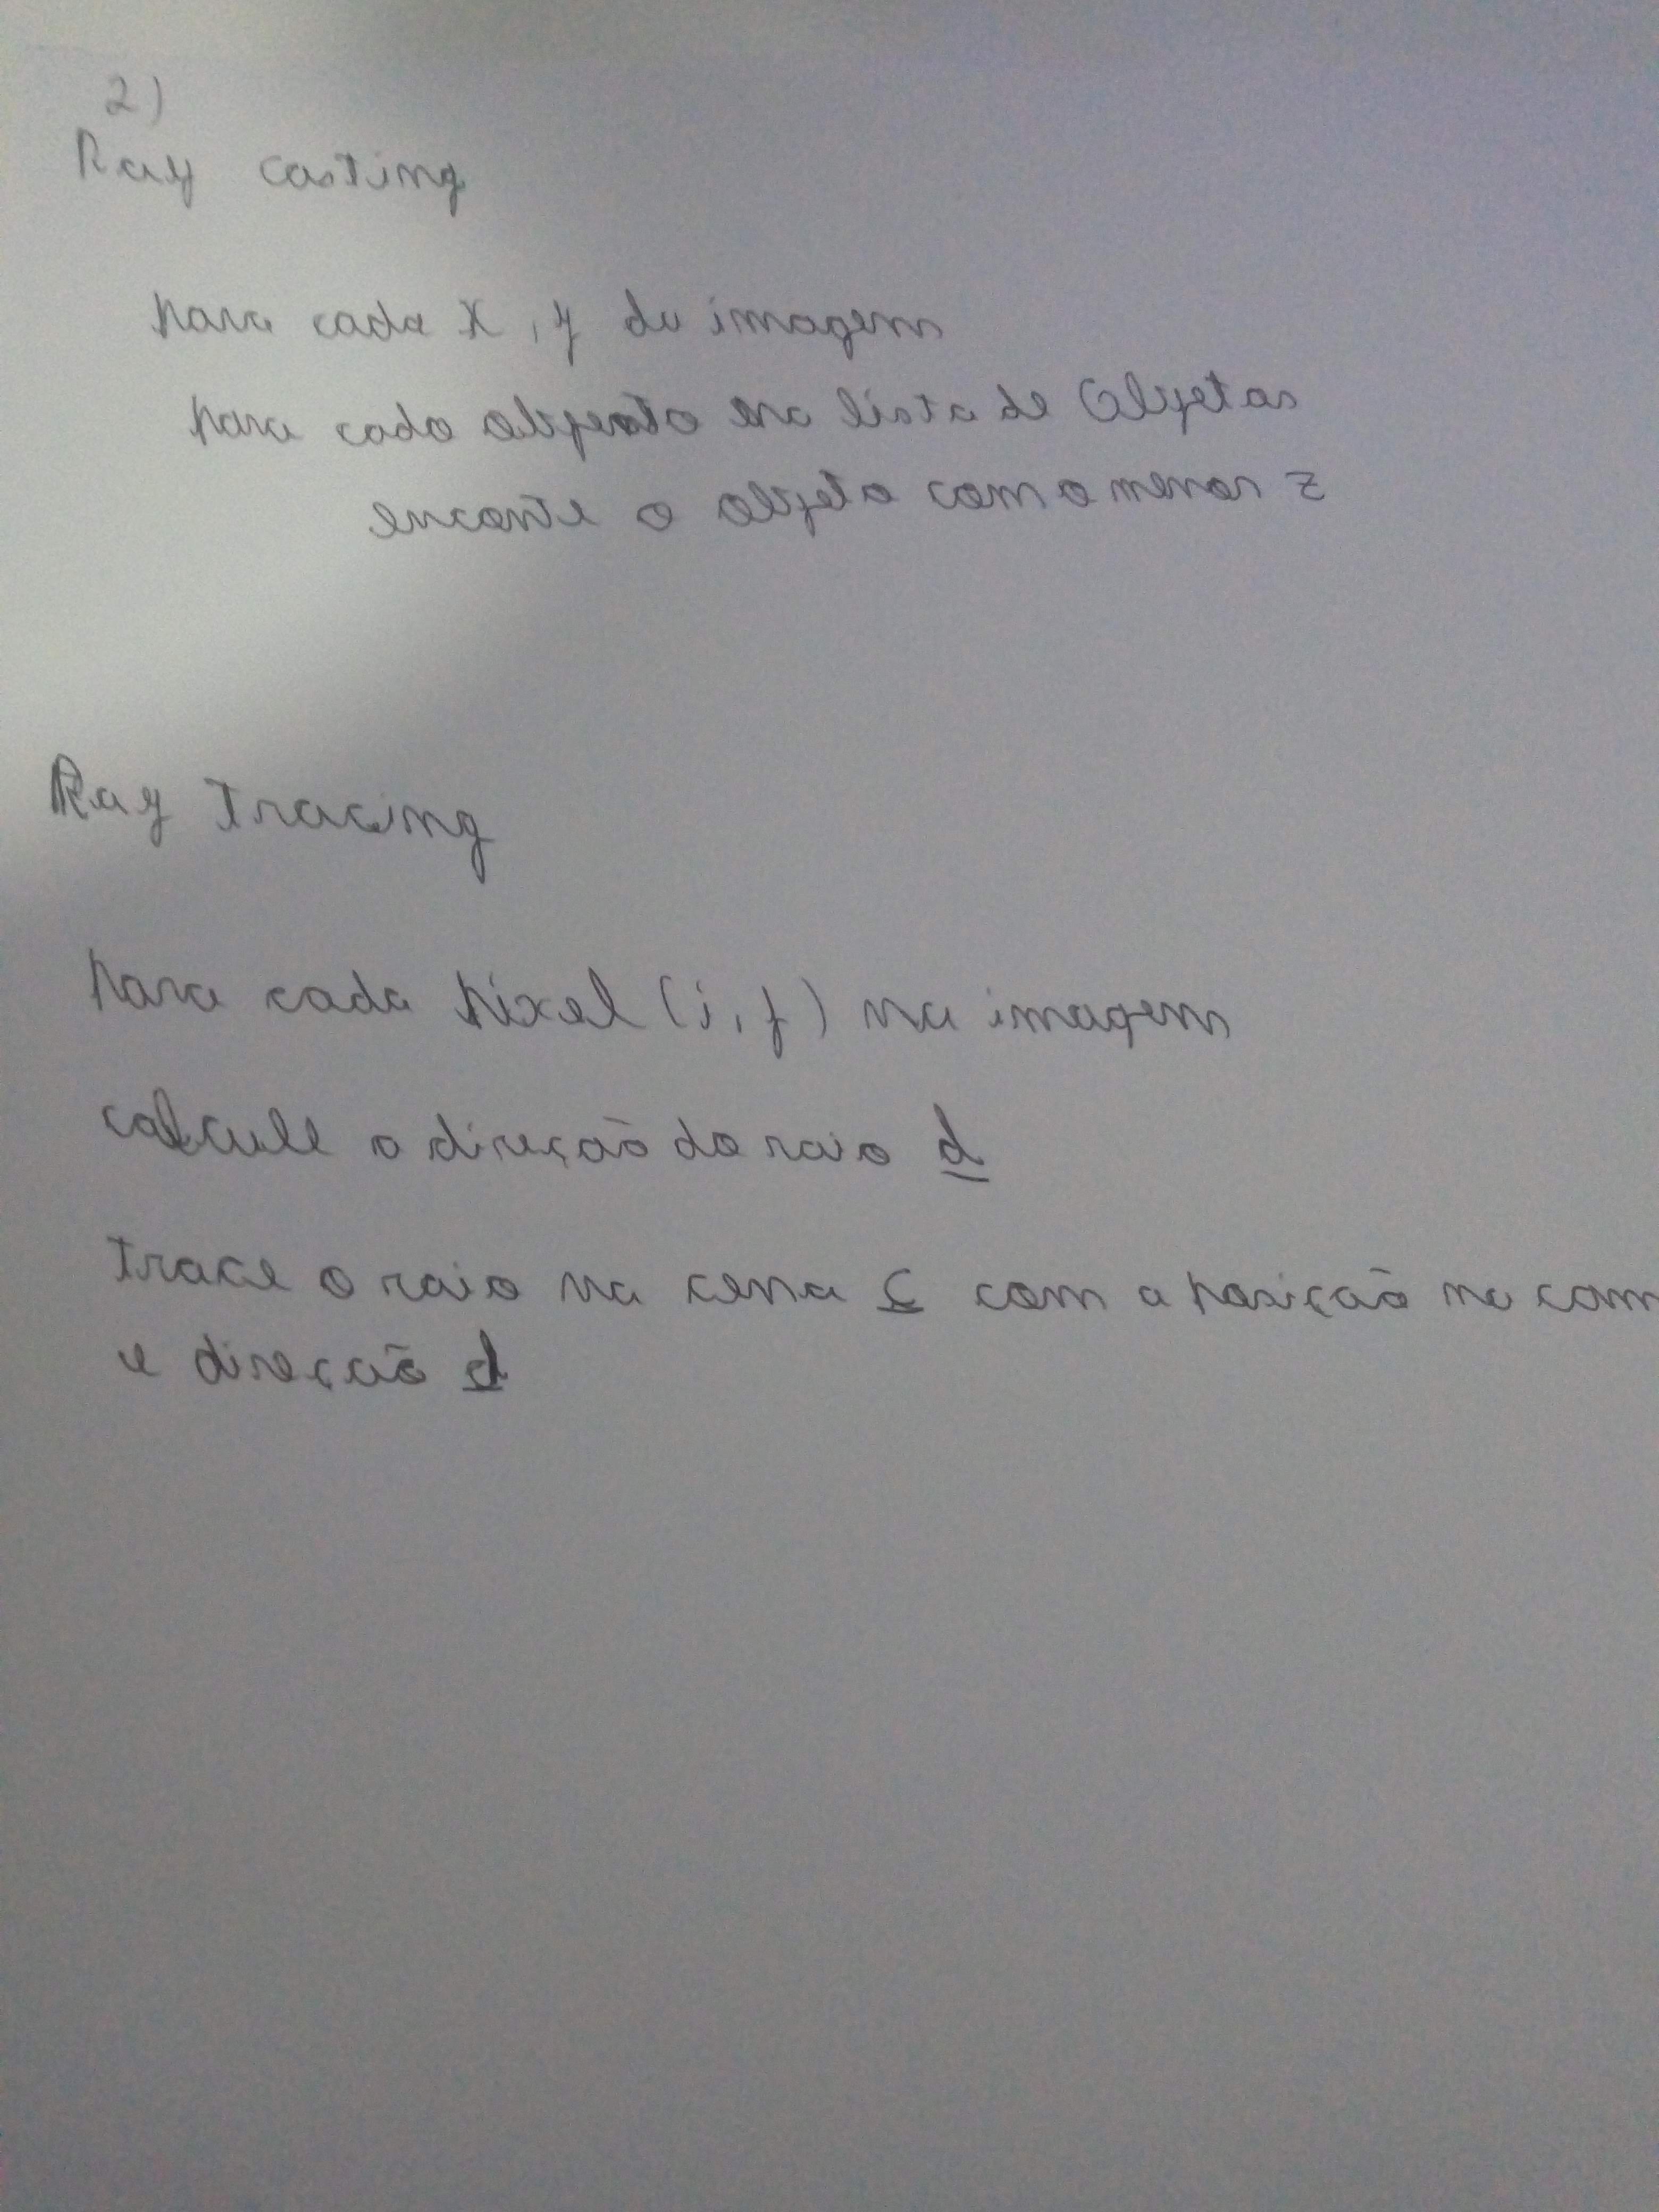 2)
Ray casting
para cada x, y da imagem
para cada objeto na lista de Objetos
encontre o objeto com o menor z
Ray Tracing
para cada pixel (i, j) na imagem
calcule a direção do raio d
Trace o raio na cena c com a posição na com
e direção d